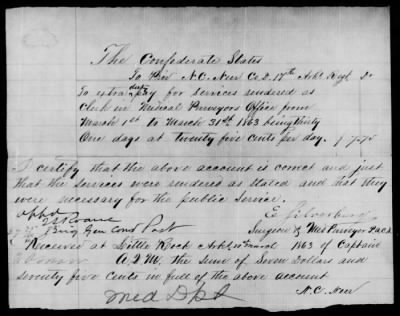 The Confederate States
To Priv N.C. Neer Co. D. 17th Arks Regt Dr
To extra duty pay for services rendered as
Clerk in Medical Purveyors Office from
March 1st to March 31st 1863 being thirty
One days at twenty five cents per day. $ 7.75
I certify that the above account is correct and just
that the services were rendered as stated and that they
were necessary for the public service.
appd
E. Silverburg
Surgeon & Med Purveyor P.A.C.S.
Brig Gen Comd Post
$7.75
Received at Little Rock Arks 1863 of Captain
A.Q.M. the sum of Seven Dollars and
seventy five cents in full of the above account
N.C. Neer
Med Dpt